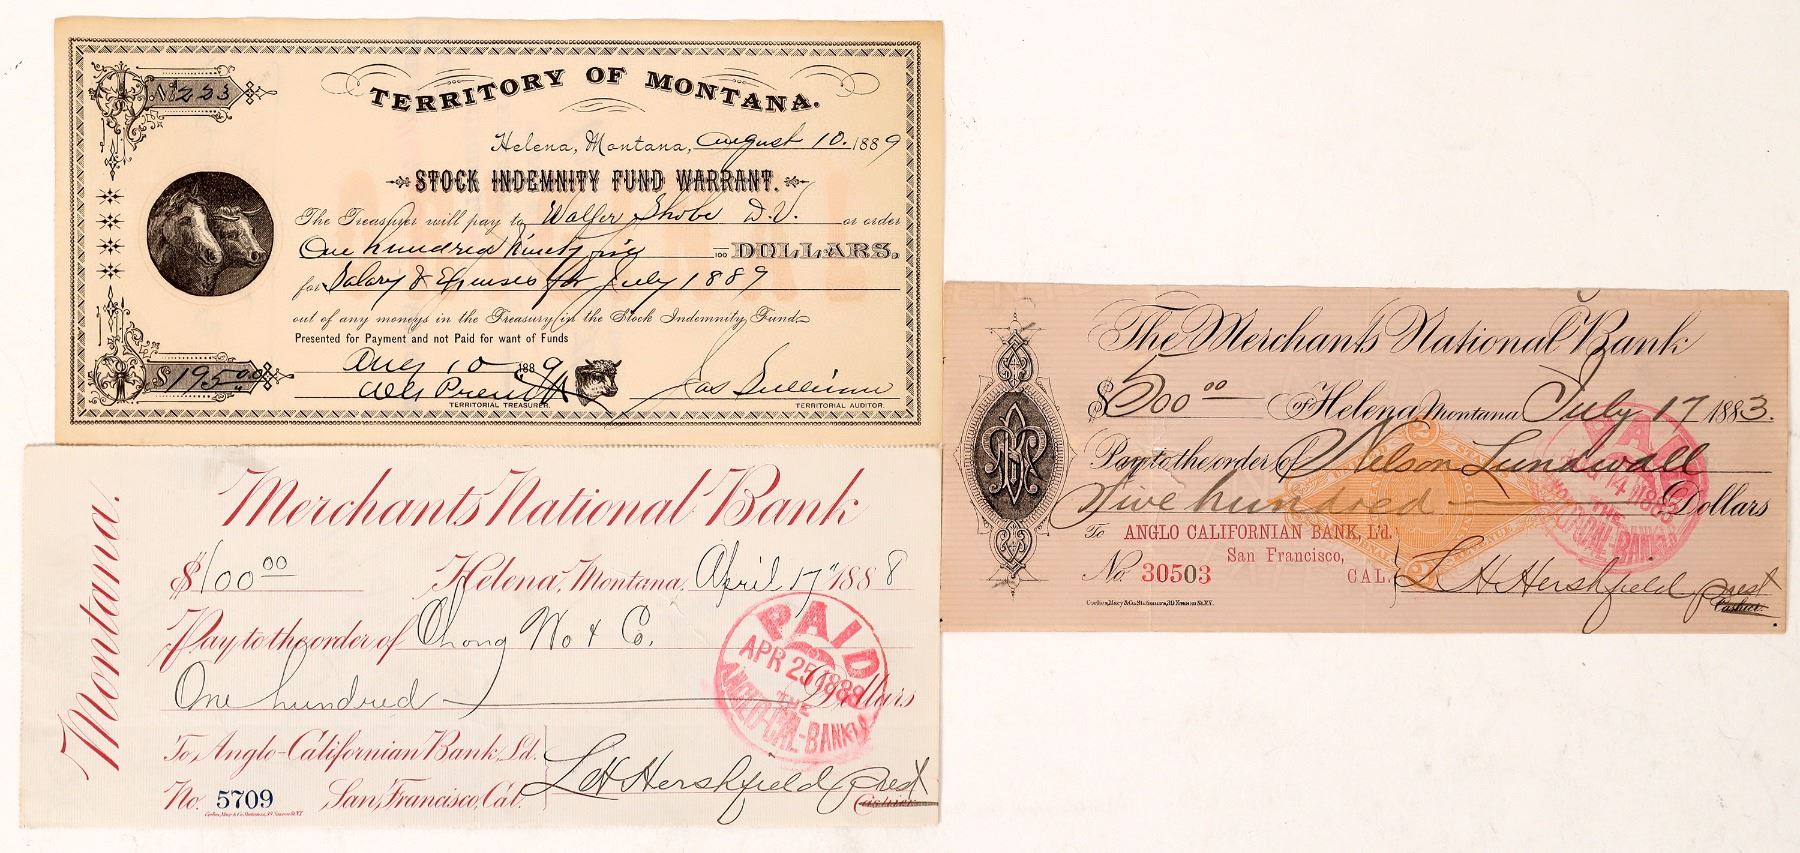 TERRITORY OF MONTANA.
No. 233
Helena, Montana, August 10. 1889
STOCK INDEMNITY FUND WARRANT.
The Treasurer will pay to Walter Shobe D.V. or order
One hundred Ninety five /100 DOLLARS.
for Salary & Expenses for July 1889
out of any moneys in the Treasury in the Stock Indemnity Fund
Presented for Payment and not Paid for want of Funds
Aug 10 1889
$ 195.00
TERRITORIAL TREASURER.
Jas Sullivan
TERRITORIAL AUDITOR.
Montana.
Merchants National Bank
$100 00 Helena, Montana, April 17" 1888
Pay to the order of Chong Wo & Co.
One hundred Dollars
To Anglo-Californian Bank, Ld.
No. 5709 San Francisco, Cal.
L H Hershfield prest
Cashier
Corlies, Macy & Co. Stationers, 39 Nassau St. N.Y.
PAID
APR 25 1888
THE
ANGLO-CAL-BANK LD
The Merchants National Bank
$500 00 of Helena, Montana July 17 1883.
Pay to the order of Nelson Lundwall
Five hundred Dollars
To ANGLO CALIFORNIAN BANK, L'd.
San Francisco,
No. 30503 CAL.
L H Hershfield prest
Cashier
Corlies, Macy & Co. Stationers, 39 Nassau St. N.Y.
PAID
14 1883
THE